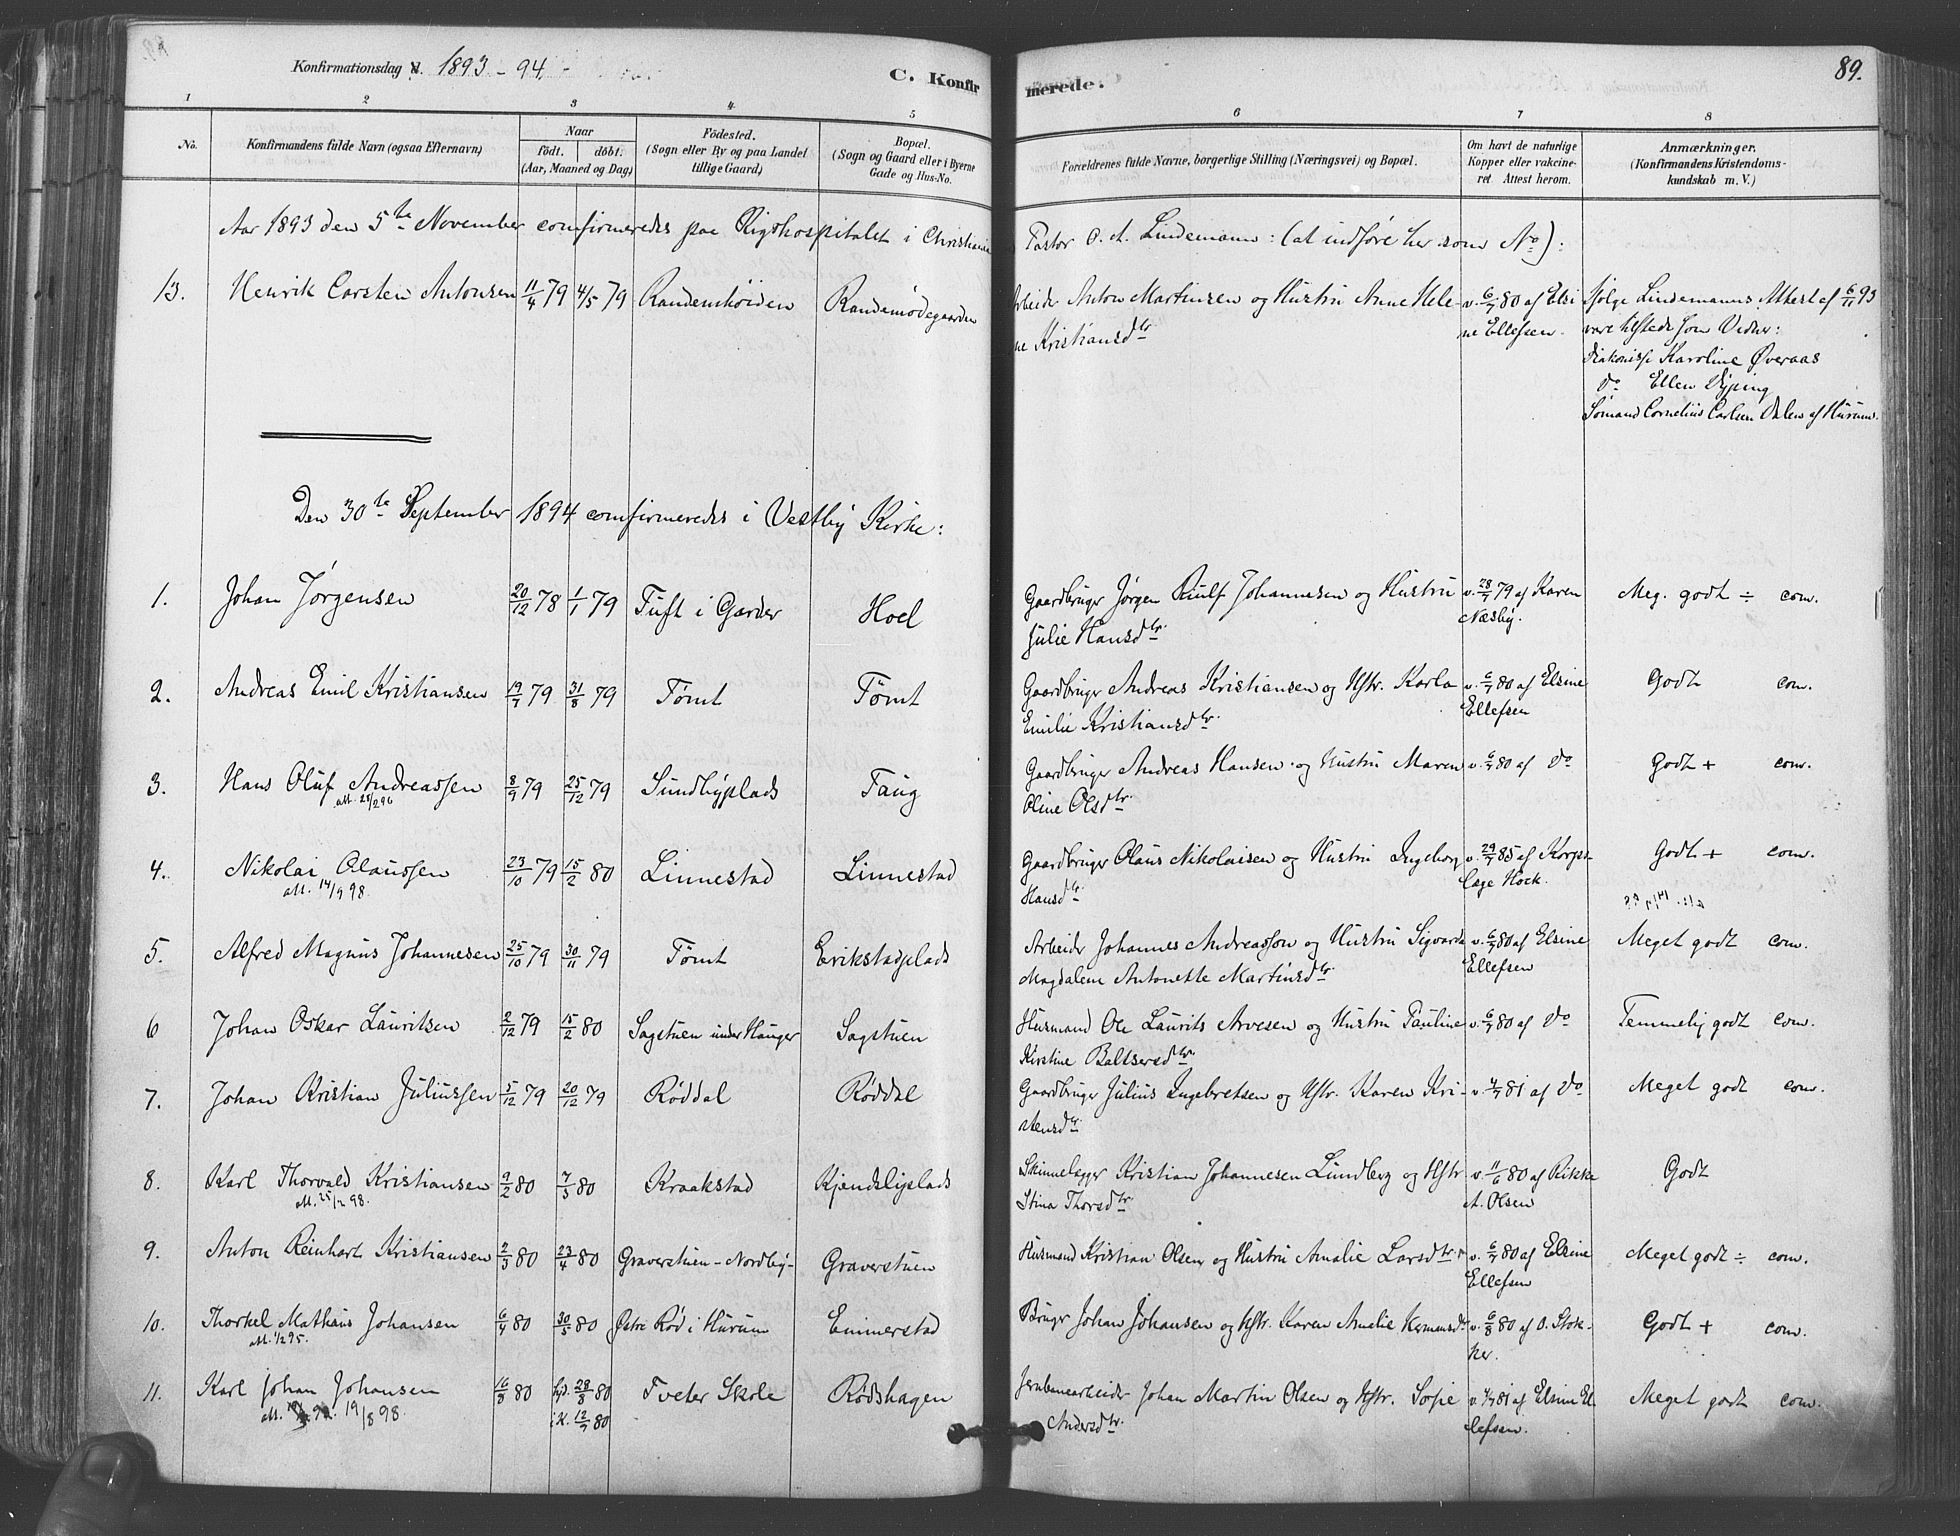 Konfirmationsdag d. 1893 - 94.
C. Konfirmerede.
89.
1 2 3 4 5 6 7 8
No.
Konfirmandens fulde Navn (ogsaa Efternavn)
Naar
födt. döbt.
(Aar, Maaned og Dag)
Födested.
(Sogn eller By og paa Landet
tillige Gaard)
Bopæl.
(Sogn og Gaard eller i Byerne
Gade og Hus-No.
Forældrenes fulde Navne, borgerlige Stilling (Næringsvei) og Bopæl.
Om havt de naturlige
Kopper eller vakcine-
ret. Attest herom.
Anmærkninger.
(Konfirmandens Kristendoms-
kundskab m. V.)
Aar 1893 den 5te November confirmeredes paa Rigshospitalet i Christiania
Pastor O. A. Lindemann: (at indføre her som No):
13. Henrik Carsten Antonsen 11/4 79 4/5 79 Randemhöiden Randemödegaarden Arbeider Anton Martinsen og Hustru Anne Hele- v. 6/7 80 af Elsi- Ifølge Lindemanns Attest af 6/11 93
ne Kristiansdtr ne Ellefsen. vare tilstede som Vidner:
Diakonisse Karoline Øveraas
do Ellen
Sömand Cornelius Carlsen Dalen af Hurum.
Den 30te September 1894 confirmeredes i Vestby Kirke:
1. Johan Jørgensen 20/12 78 1/1 79 Tuft i Garder Hoel Gaardbruger Jørgen Riulf Johannesen og Hustru v. 28/7 79 af Karen Meg. godt ÷ com.
Julie Hansdtr. Næsby.
2. Andreas Emil Kristiansen 19/7 79 31/8 79 Tømt Tømt Gaardbruger Andreas Kristiansen og Hstr. Karla v. 6/7 80 af Elsine Godt com.
Emilie Kristiansdtr. Ellefsen
3. Hans Oluf Andreassen 8/9 79 25/12 79 Sundbyplads Taug Gaardbruger Andreas Hansen og Hustru Maren v. 6/7 80 af do Godt + com.
att. 28/2 96 Oline Olsdtr.
4. Nikolai Olaussen 23/10 79 15/2 80 Linnestad Linnestad Gaardbruger Olaus Nikolaisen og Hustru Ingeborg v. 29/7 85 af Korps- Godt + com.
att. 14/9 98. Hansdtr læge Höck.
5. Alfred Magnus Johannesen 25/10 79 30/11 79 Tømt Erikstadplads Arbeider Johannes Andreassen og Hustru Sigvarda v. 6/7 80 af Elsine Meget godt com.
Magdalene Antonette Martinsdtr. Ellefsen
6 Johan Oskar Lauritsen 2/12 79 15/2 80 Sagstuen under Hauger Sagstuen Husmand Ole Laurits Arvesen og Hustru Pauline v. 6/7 80 af do Temmelig godt com.
Kirstine Baltsersdtr.
7. Johan Kristian Juliussen 5/12 79 20/12 79 Røddal Røddal Gaardbruger Julius Ingebretsen og Hstr. Karen Kri- v. 4/7 81 af do Meget godt com.
stensdtr
8. Karl Thorvald Kristiansen 9/2 80 7/3 80 Kraakstad Kjændsliplads Skinnelægger Kristian Johannesen Lundberg og Hstr v. 11/6 80 af Rikke Godt
att. 25/2 98. Stina Thorsdtr. A. Olsen
9. Anton Reinhart Kristiansen 2/3 80 23/4 80 Graverstuen-Nordby- Graverstuen Husmand Kristian Olsen og Hustru Amalie Larsdtr. v. 6/7 80 af Elsine Meget godt ÷ com.
Ellefsen
10. Thorkel Mathæus Johansen 6/4 80 30/5 80 Østre Rød i Hurum Emmerstad Bruger Johan Johansen og Hstr. Karen Amalie Hermansdtr v. 6/8 80 af O. Stok- Godt + com.
att. 1/2 95. ker.
11. Karl Johan Johansen 16/8 80 hjd. 28/8 80 Tveter Skole Rødshagen Jernbanearbeider Johan Martin Olsen og Hstr. Sofie v. 4/7 81 af Elsine El- Meget godt com.
att. 19/8 98. i K. 12/9 80 Andersdtr. lefsen.